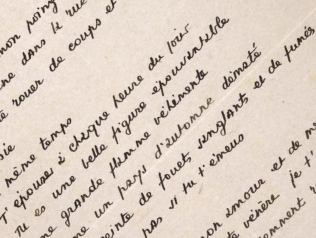 mon poing
ne dans la rue
e rouer de coups et
sie
même temps
T'épouse à chaque heure du jour
Tu es une belle figure épouvantable
me grande flamme véhémente
me un pays d'automne démâté
einte de fouets sanglants et de fumés
pas si tu t'émeus
on amour et de me
te vénère je t'